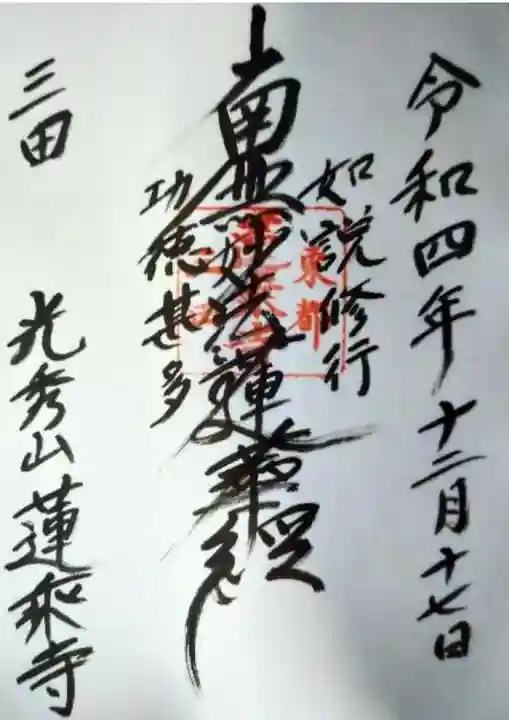 令和四年十二月十七日
如説修行
南無妙法蓮華経
功徳甚多
東都
三田
光秀山蓮乘寺